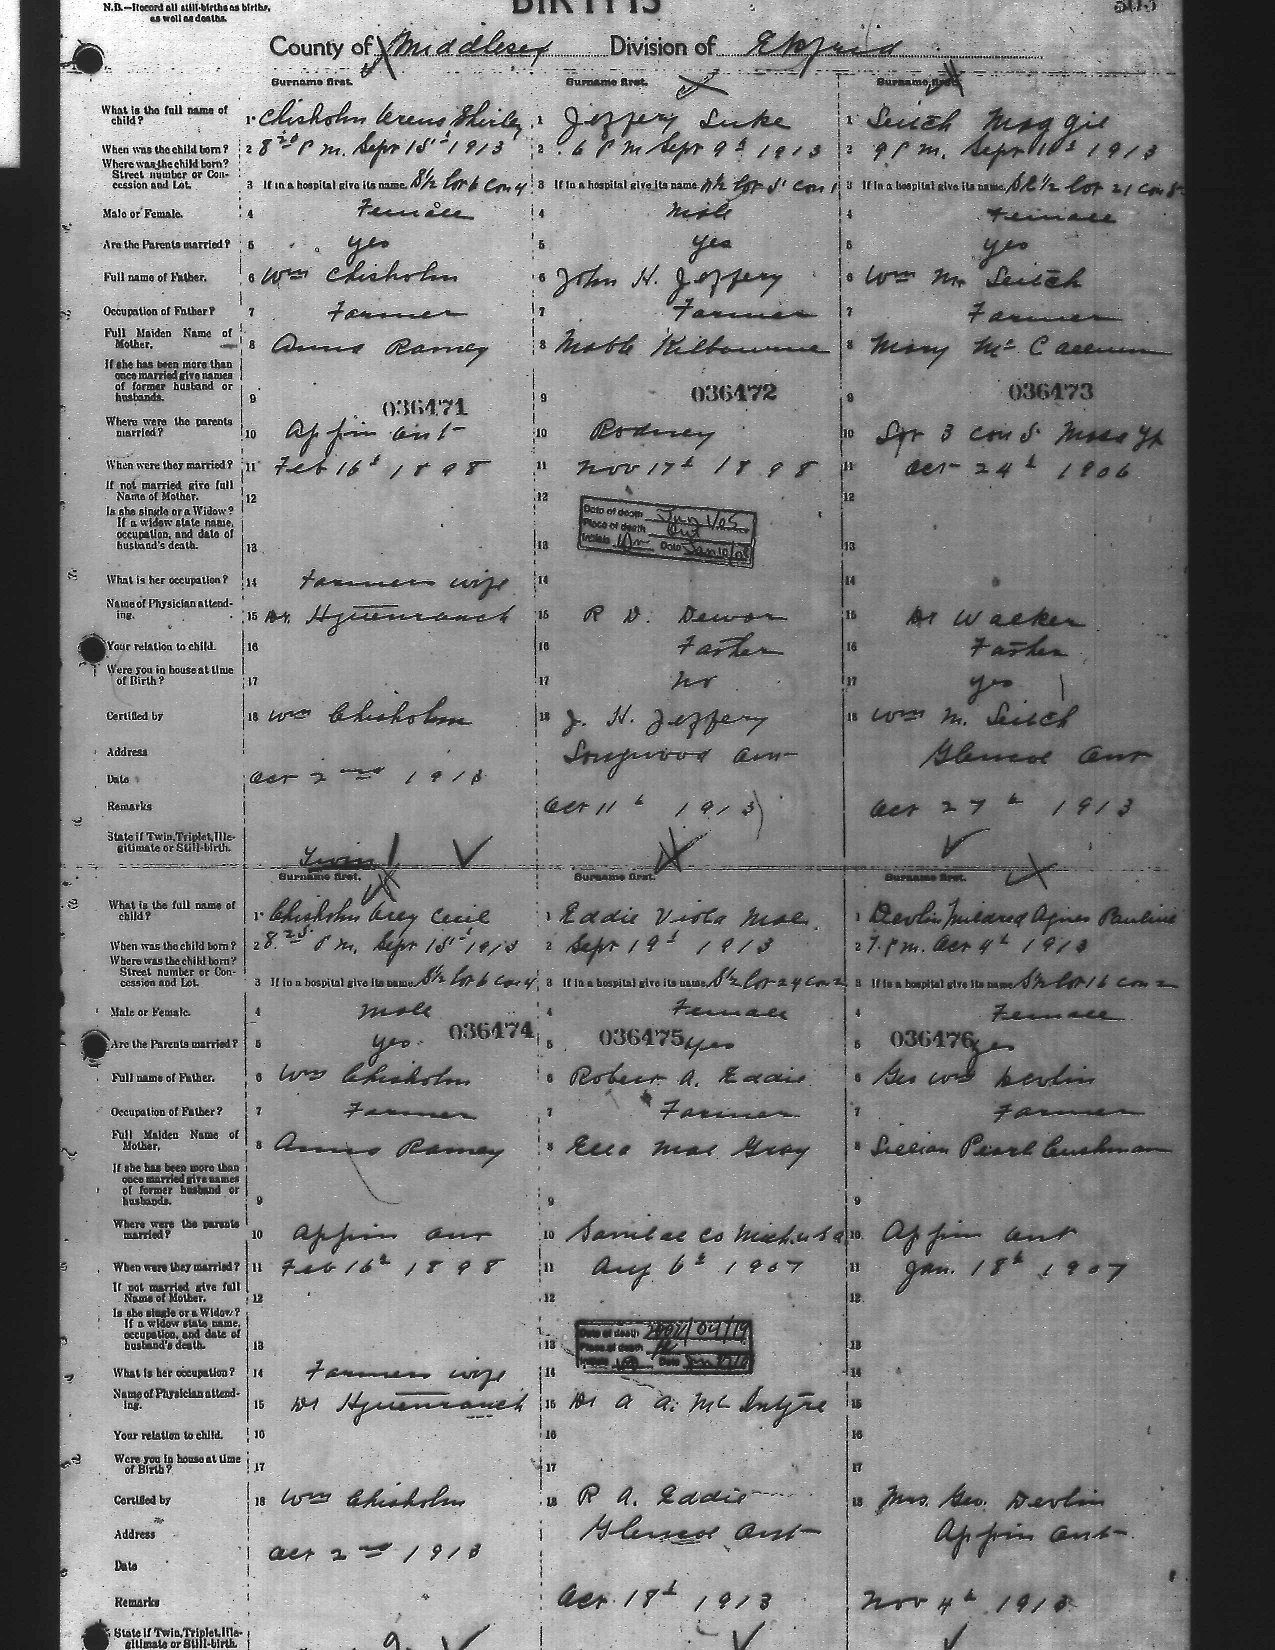 N.B.—Record all still-births as births,
as well as deaths.
BIRTHS
505
County of Middlesex Division of Ekfrid
Surname first. Surname first. Surname first.
What is the full name of child? 1 Chisholm Shirley 1 Jeffery Luke 1 Leitch Maggie
When was the child born? 2 8 20 P m. Sept 15th 1913 2 6 P m Sept 9th 1913 2 9 P m. Sept 10th 1913
Where was the child born?
Street number or Concession and Lot. 3 If in a hospital give its name. S½ lot 6 con 4 3 If in a hospital give its name. N½ lot 5 con 1 3 If in a hospital give its name. ½ lot 21 con 8
Male or Female. 4 Female 4 Male 4 Female
Are the Parents married? 5 yes 5 yes 5 yes
Full name of Father. 6 Wm Chisholm 6 John H. Jeffery 6 Wm M. Leitch
Occupation of Father? 7 Farmer 7 Farmer 7 Farmer
Full Maiden Name of Mother. 8 Anna Ramey 8 Mable Kilbourne 8 Mary McCallum
If she has been more than once married give names of former husband or husbands. 9 9 9
036471 036472 036473
Where were the parents married? 10 Appin Ont 10 Rodney 10 Lot 3 con 5 Mosa Tp
When were they married? 11 Feb 16th 1898 11 Nov 17th 1898 11 Oct 24th 1906
If not married give full Name of Mother. 12 12 12
Is she single or a Widow?
If a widow state name, occupation, and date of husband's death. 13 13 13
Date of death
Place of death Ont
Initials Date
What is her occupation? 14 Farmers wife 14 14
Name of Physician attending. 15 Dr. 15 R D. Dewar 15 Dr Walker
Your relation to child. 16 16 Father 16 Father
Were you in house at time of Birth? 17 17 No 17 yes
Certified by 18 Wm Chisholm 18 J. H. Jeffery 18 Wm M. Leitch
Address Longwood Ont Glencoe Ont
Date Oct 2nd 1913
Remarks Oct 11th 1913 Oct 27th 1913
State if Twin, Triplet, Illegitimate or Still-birth. Twin
Surname first. Surname first. Surname first.
What is the full name of child? 1 Chisholm Cecil 1 Eddie Viola Mae. 1 Devlin Mildred Agnes Pauline
When was the child born? 2 8 25 P m, Sept 15th 1913 2 Sept 19th 1913 2 7. P m. Oct 4th 1913
Where was the child born?
Street number or Concession and Lot. 3 If in a hospital give its name. S½ lot 6 con 4 3 If in a hospital give its name. S½ lot 24 con 2 3 If in a hospital give its name. S½ lot 16 con 2
Male or Female. 4 Male 4 Female 4 Female
036474 036475 036476
Are the Parents married? 5 yes. 5 yes 5 yes
Full name of Father. 6 Wm Chisholm 6 Robert A. Eddie 6 Geo Wm Devlin
Occupation of Father? 7 Farmer 7 Farmer 7 Farmer
Full Maiden Name of Mother. 8 Anna Ramey 8 Ella Mae Gray 8 Lillian Pearl Cushman
If she has been more than once married give names of former husband or husbands. 9 9 9
Where were the parents married? 10 Appin Ont 10 Sanilac Co Mich. U S A 10 Appin Ont
When were they married? 11 Feb 16th 1898 11 Aug 6th 1907 11 Jan. 18th 1907
If not married give full Name of Mother. 12 12 12
Is she single or a Widow?
If a widow state name, occupation, and date of husband's death. 13 13 13
Date of death 2002/04/19
Place of death
Initials Date
What is her occupation? 14 Farmers wife 14 14
Name of Physician attending. 15 Dr 15 Dr A A. McIntyre 15
Your relation to child. 16 16 16
Were you in house at time of Birth? 17 17 17
Certified by 18 Wm Chisholm 18 R A. Eddie 18 Mrs. Geo. Devlin
Address Glencoe Ont Appin Ont
Date Oct 2nd 1913
Remarks Oct. 18th 1913 Nov 4th 1913
State if Twin, Triplet, Illegitimate or Still-birth.